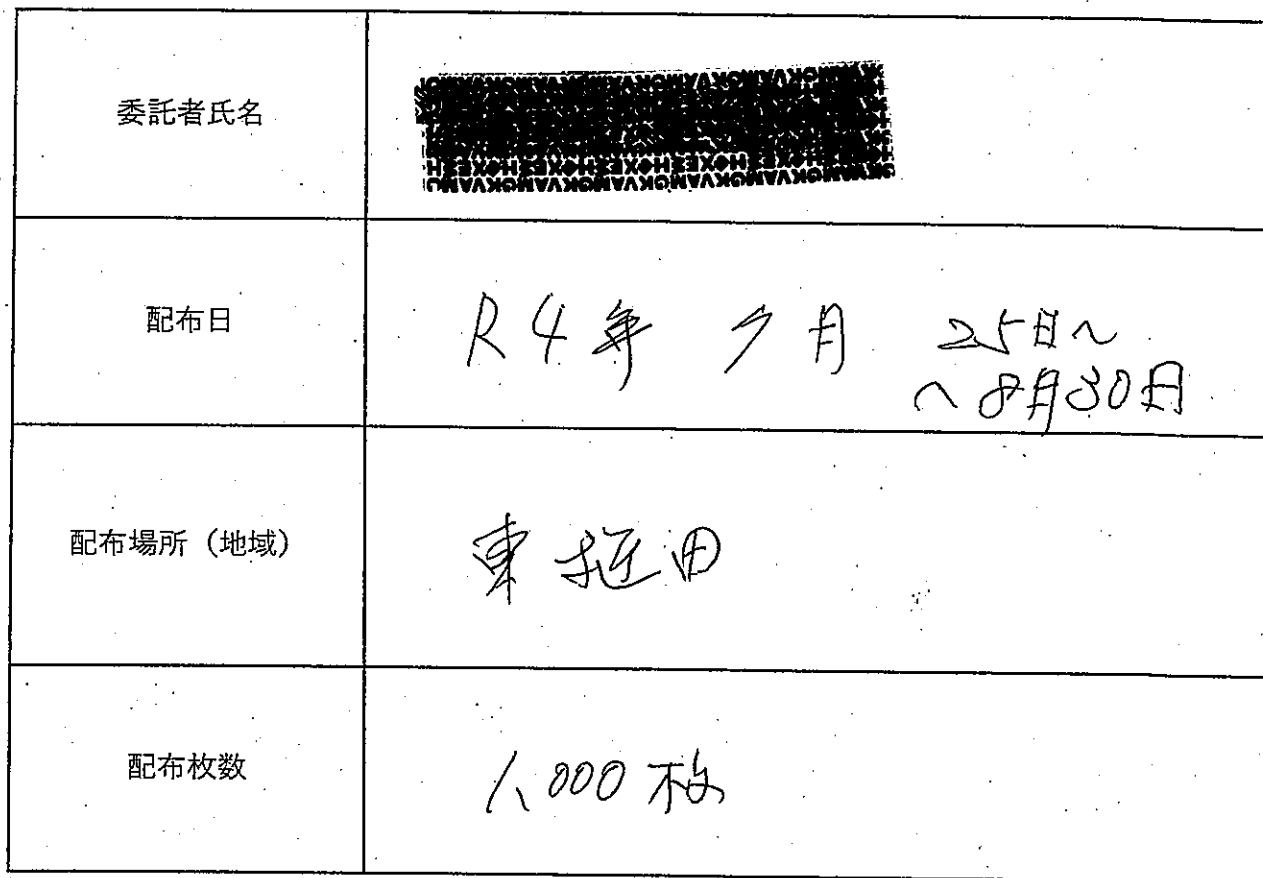 委託者氏名
配布日
R4年 7月 25日～
～8月30日
配布場所（地域）
東 田
配布枚数
1,000枚